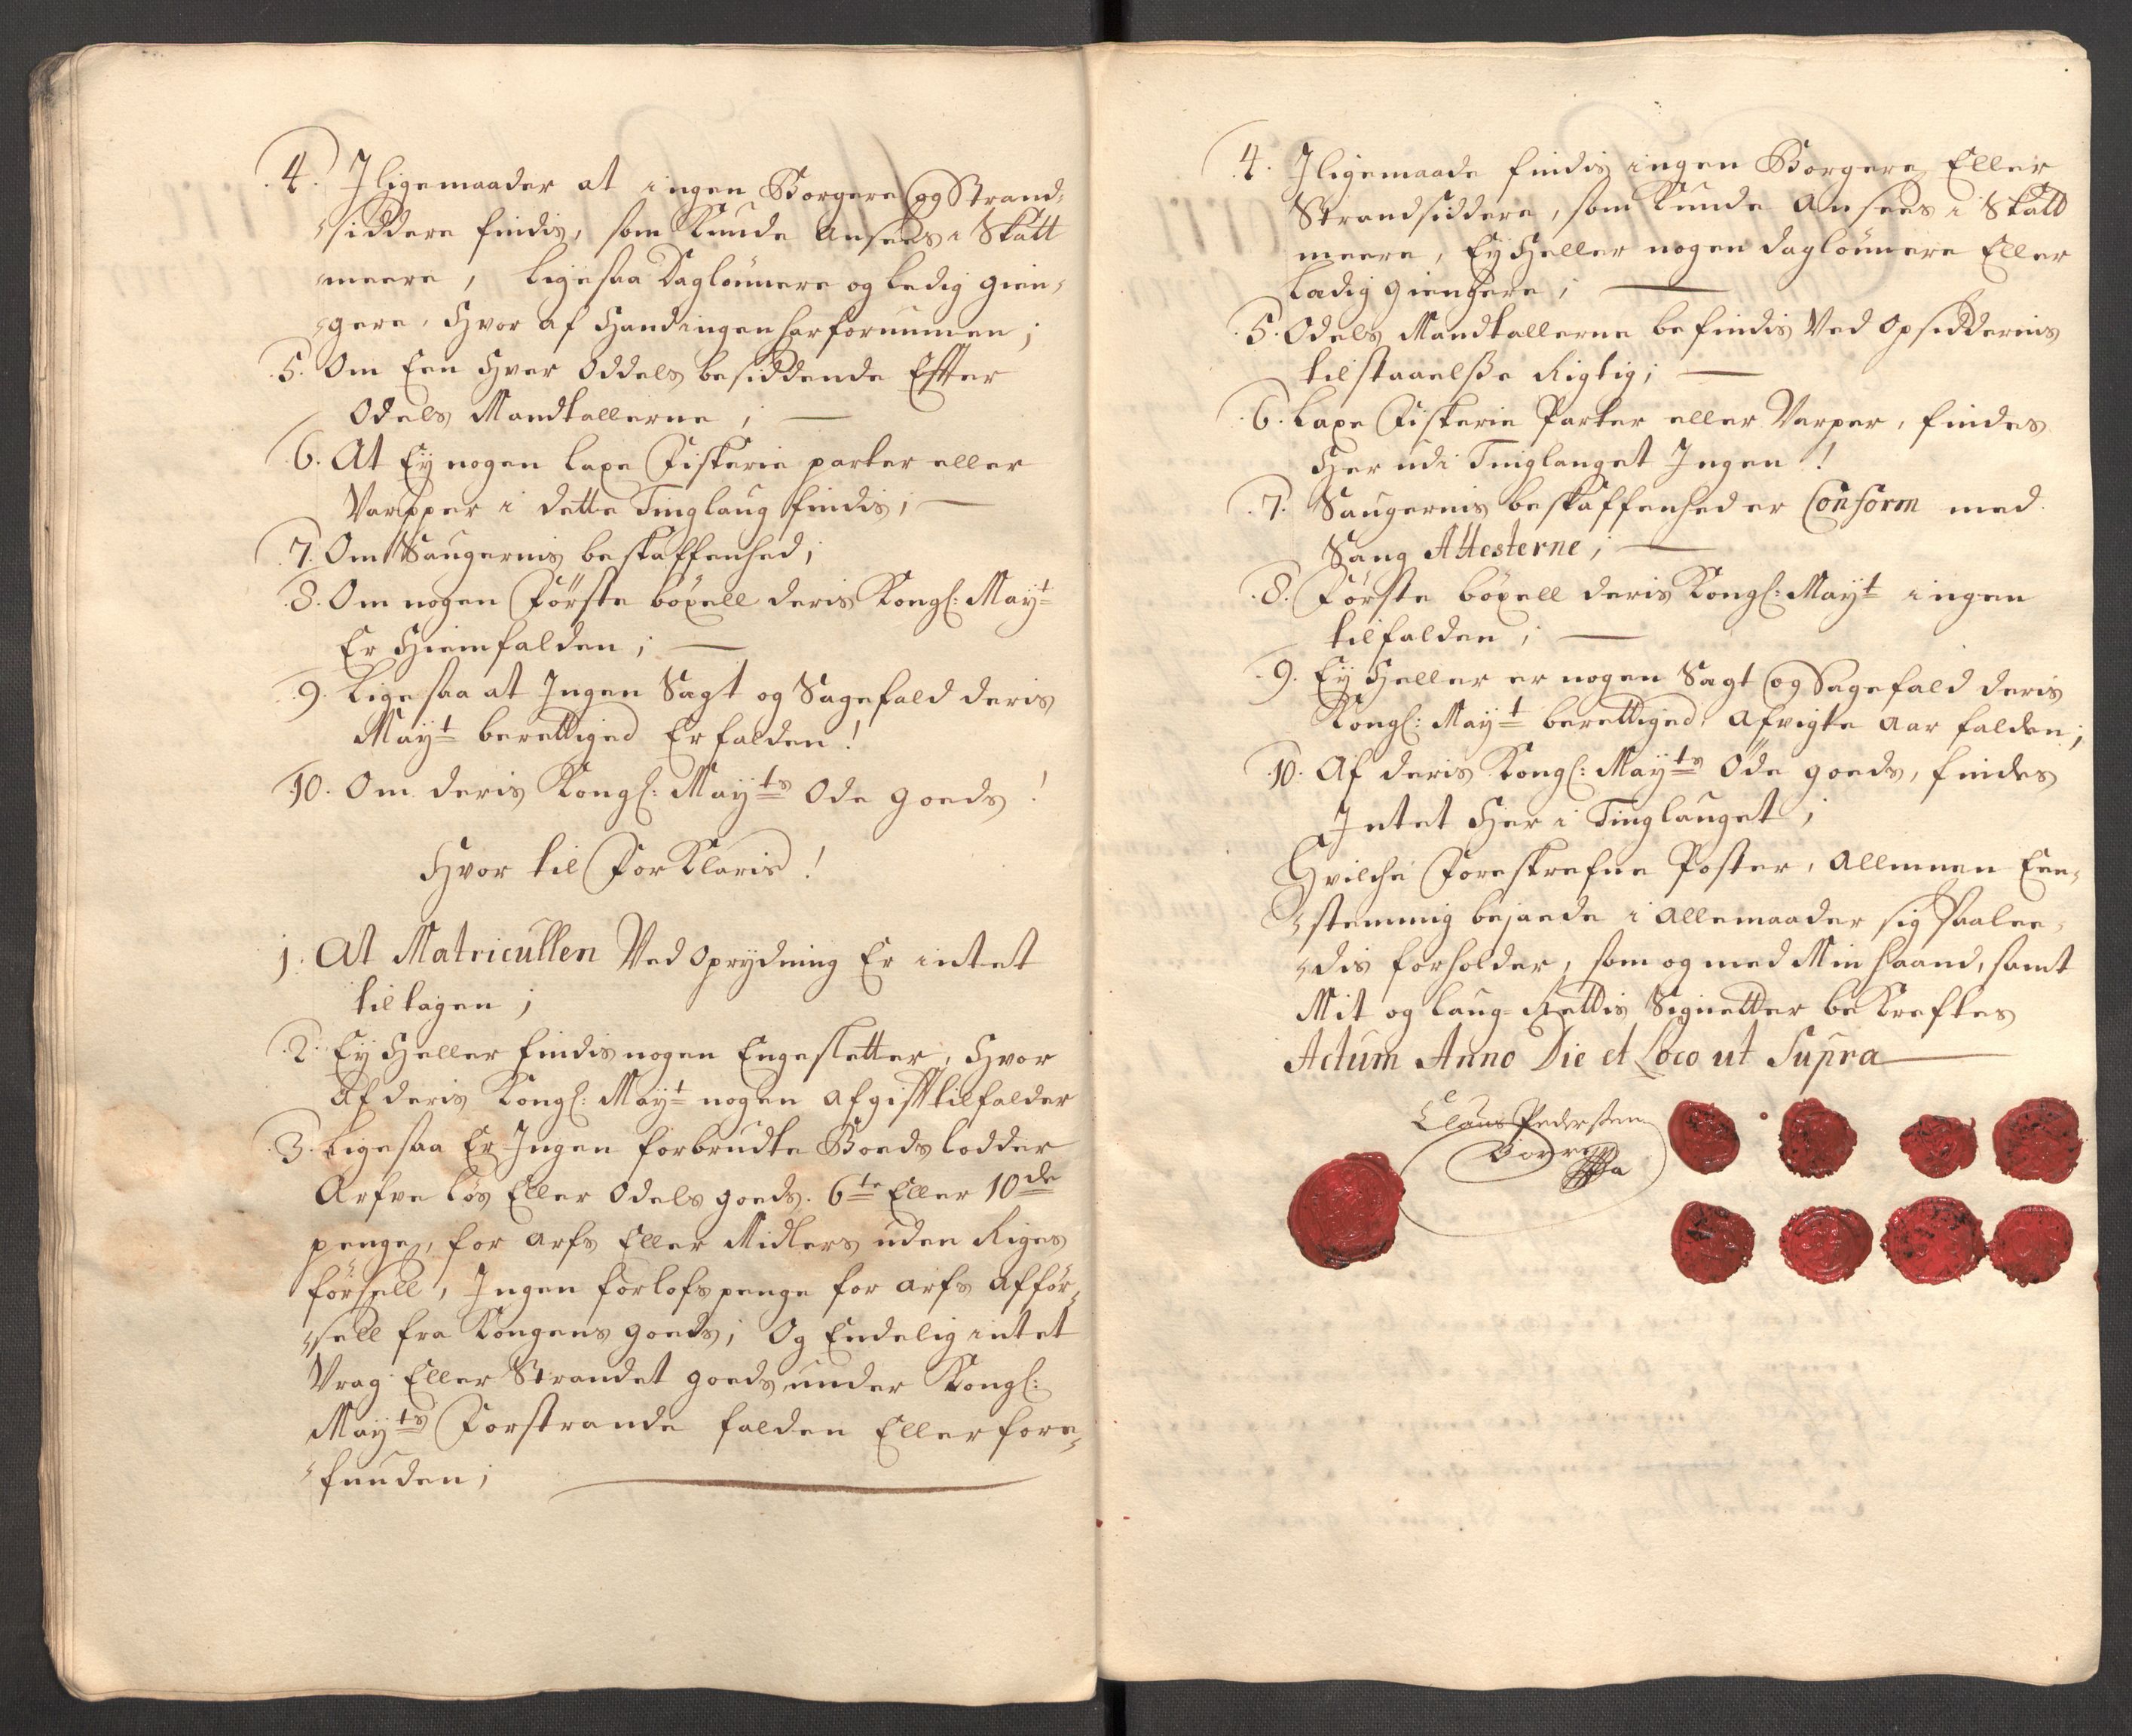 4. Jligemaader at ingen Borgere og Strand-
siddere findis, som Kunde ansees i Skatt
meere, ligesaa Daglönnere og ledig gien-
gere, Hvor af Hand ingen har fornummen;
5. Om Een Hver Oddels besiddende Effter
Odels Mandtallerne;
6. At Ey nogen laxe Fiskerie parter eller
Varpper i dette Tinglaug findis;
7. Om Saugernis beskaffenhed;
8. Om nogen Förste böxell deris Kongl: Mayt
Er Hiemfalden;
9. Ligesaa at Ingen Sagt og Sagefald deris
Mayt berettiged Er falden!
10. Om deris Kongl: Mayts Öde goeds!
Hvor til For Klaris!
1. At Matricullen Ved Oprydning Er intet
tiltagen;
2. Ey Heller findis nogen Engesletter, Hvor
Af deris Kongl: Mayt nogen afgifft tilfalder
3. Ligesaa Er Ingen forbrudte Boeds lodder
Arfve lös Eller Odels goeds. 6te Eller 10de
penge, for arfs Eller Midlers uden Riges
försell, Ingen forlofs penge for arfs afför-
sell fra Kongens goeds; Og Endelig intet
Vrag Eller Strandet goeds under Kongl:
Mayts Forstrande falden Eller fore-
funden;
4. Jligemaade findis ingen Borgere Eller
Strandsiddere, som Kunde Ansees i Skatt
meere, Ey Heller nogen daglönnere Eller
ladig giengere;
5. Odels Mandtallerne befindis Ved Opsiddernis
tilstaaelsse Rigtig;
6. Laxe Fiskerie Parter eller Varper, findes
Her udi Tinglauget Ingen!
7. Saugernis beskaffenhed er Conform med
Saug Attesterne;
8. Förste böxell deris Kongl: Mayt ingen
tilfalden;
9. Ey Heller er nogen Sagt og Sagefald deris
Kongl: Mayt berettiged afvigte Aar falden;
10. Af deris Kongl: Mayts Öde goeds, findes
Intet Her i Tinglauget;
Hvilche Foreskrefne Poster, Allmuen Een-
stemmig bejaede i allemaader sig saalee-
dis forholder, som og med Min Haand, samt
Mit og Laug-Rettis Signetter be Kreftes
Actum Anno Die et Loco ut Supra
Claus Pedersen